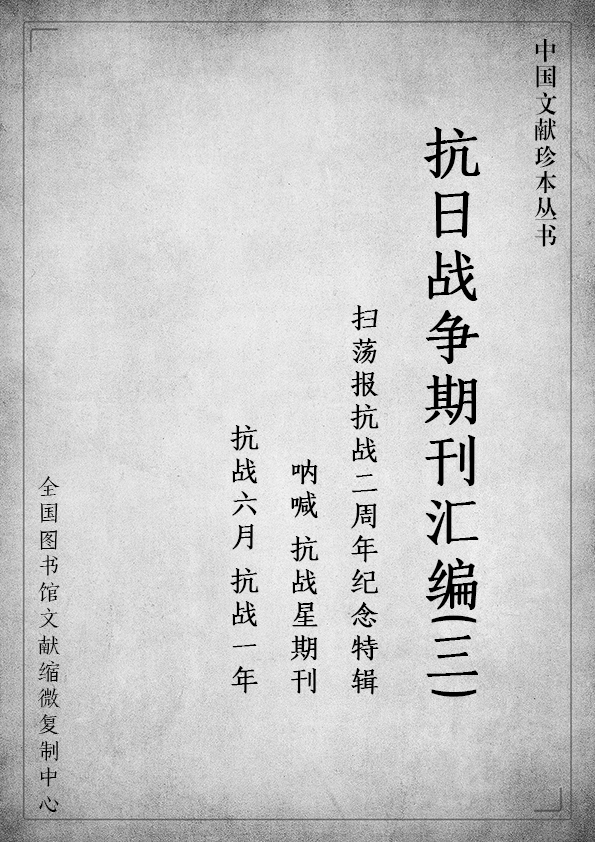 中国文献珍本丛书
抗日战争期刊汇编(三)
扫荡报抗战二周年纪念特辑
呐喊 抗战星期刊
抗战六月 抗战一年
全国图书馆文献缩微复制中心